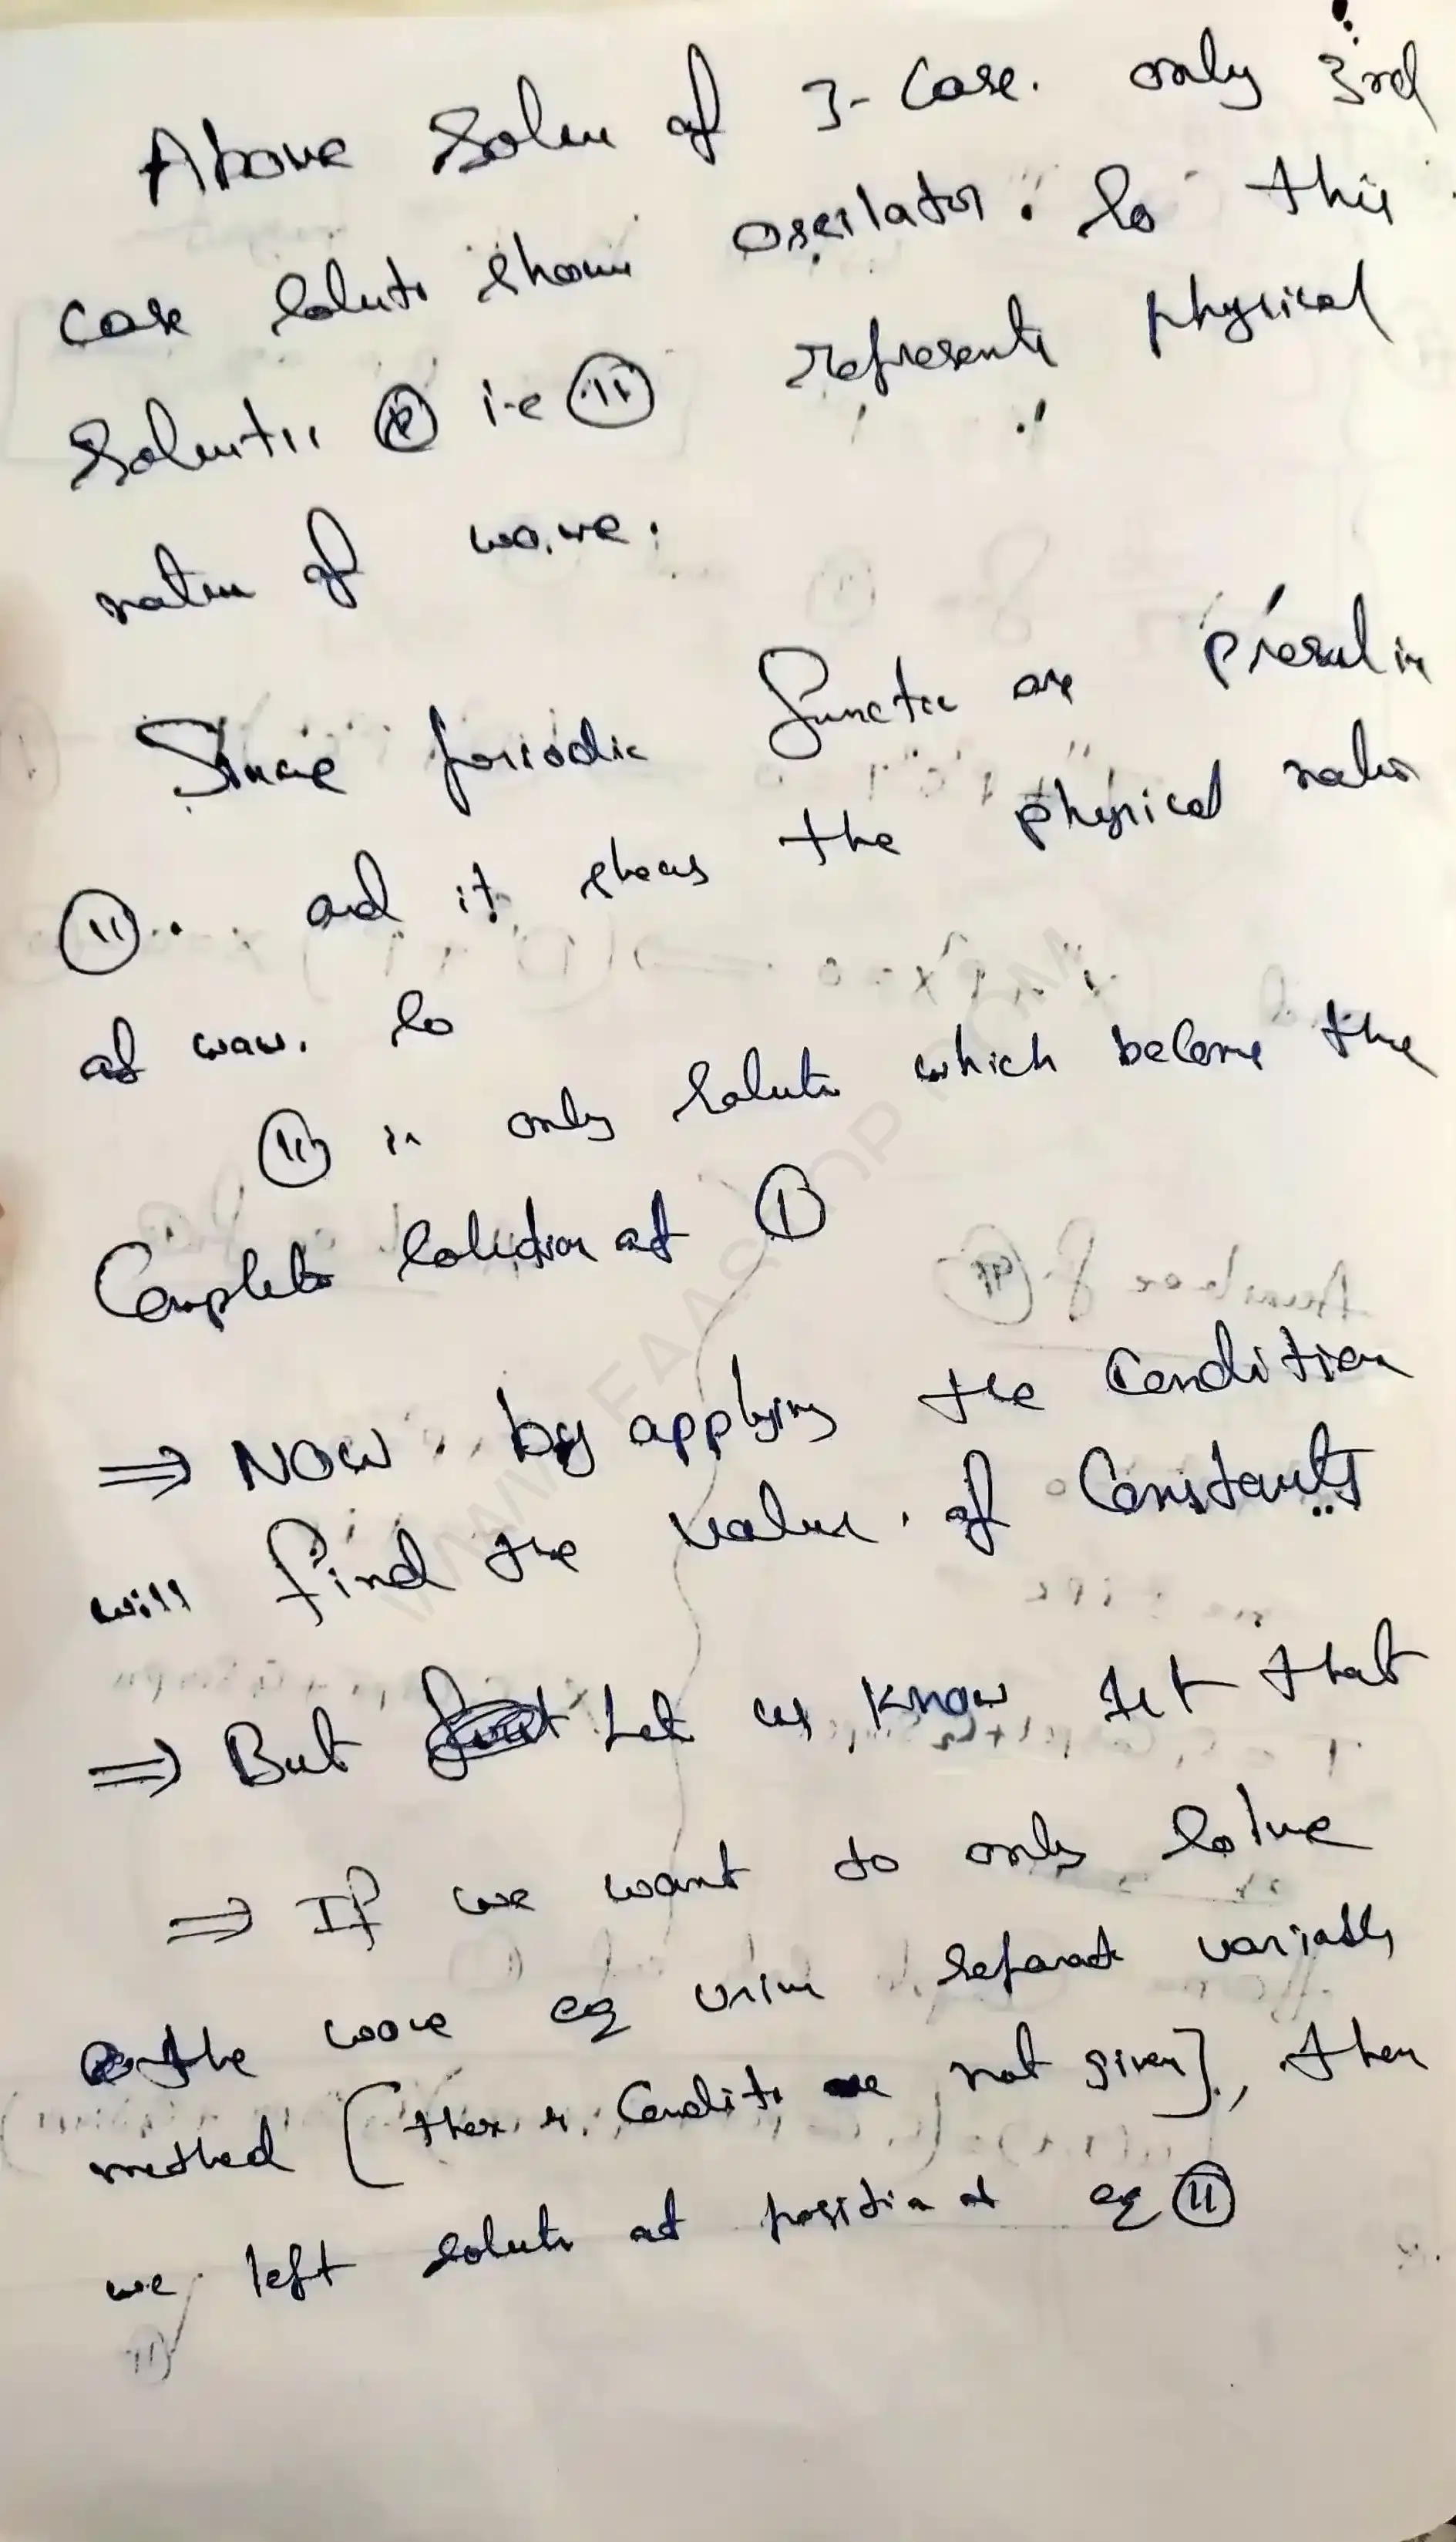 Above Solu of 3-Case. only 3rd
case Solut shows oscilator. So this
Solut i.e (11) represents physical
natu of wave.
Since periodic functi are present in
(11). and it shows the physical natur
of wav. So
(11) is only Solut which become the
Complete Solution of (1)
⇒ NOW by applying the Condition
will find the value of Constants
⇒ But Let us know that
⇒ If we want to only Solve
the wave eq using Separat variable
method [ there Condit are not given ], then
we left solut at position of eq (11)